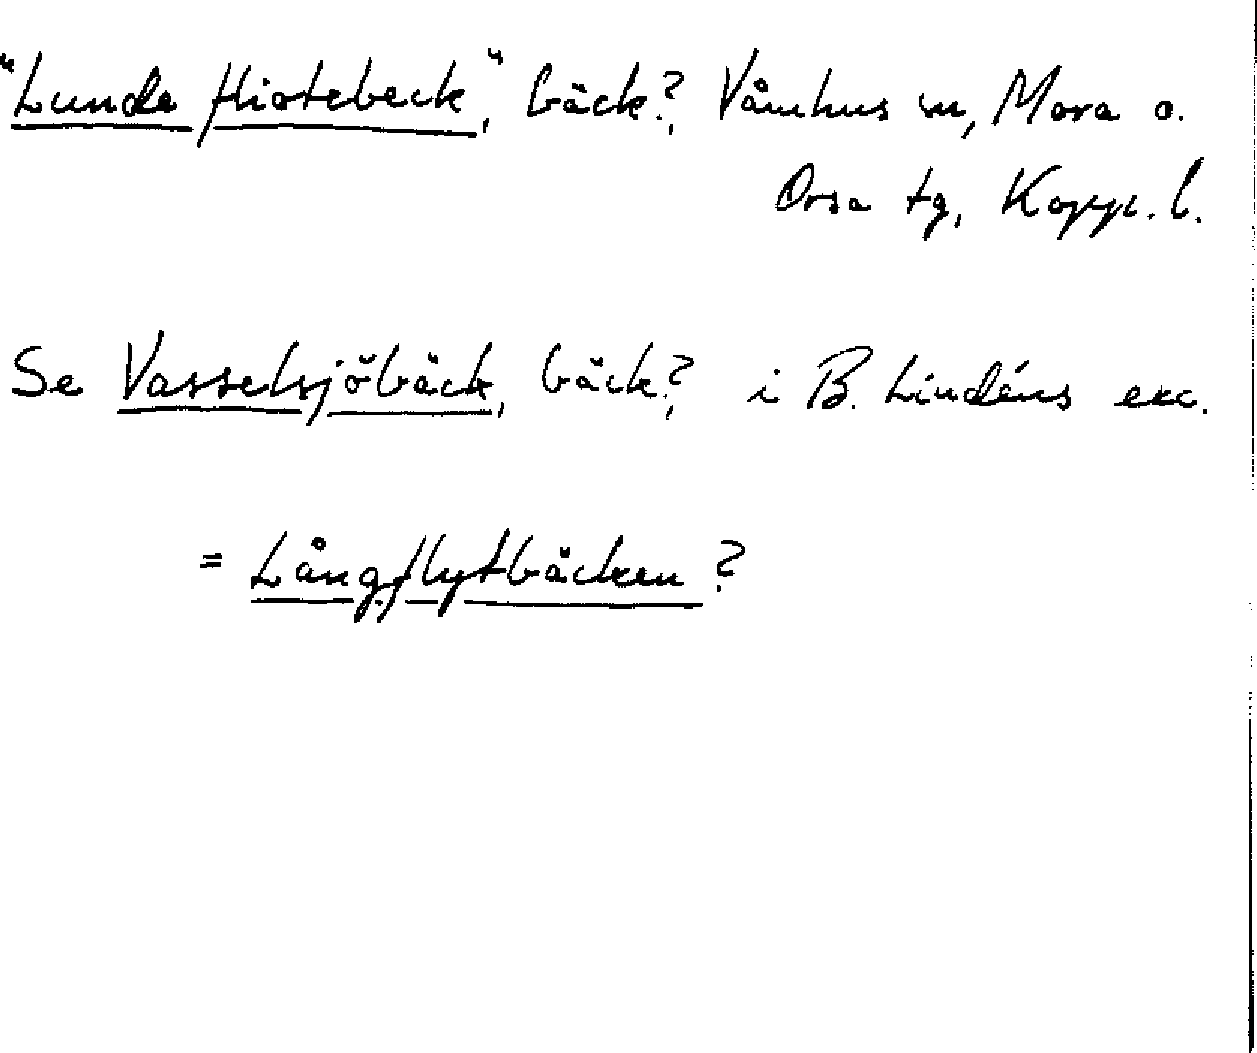 "Lunde fliotebeck", bäck? Våmhus sn, Mora o.
Orsa tg, Kopp. l.
Se Vasselsjöbäck, bäck? i B. Lindéns exc.
= Långflytbäcken?